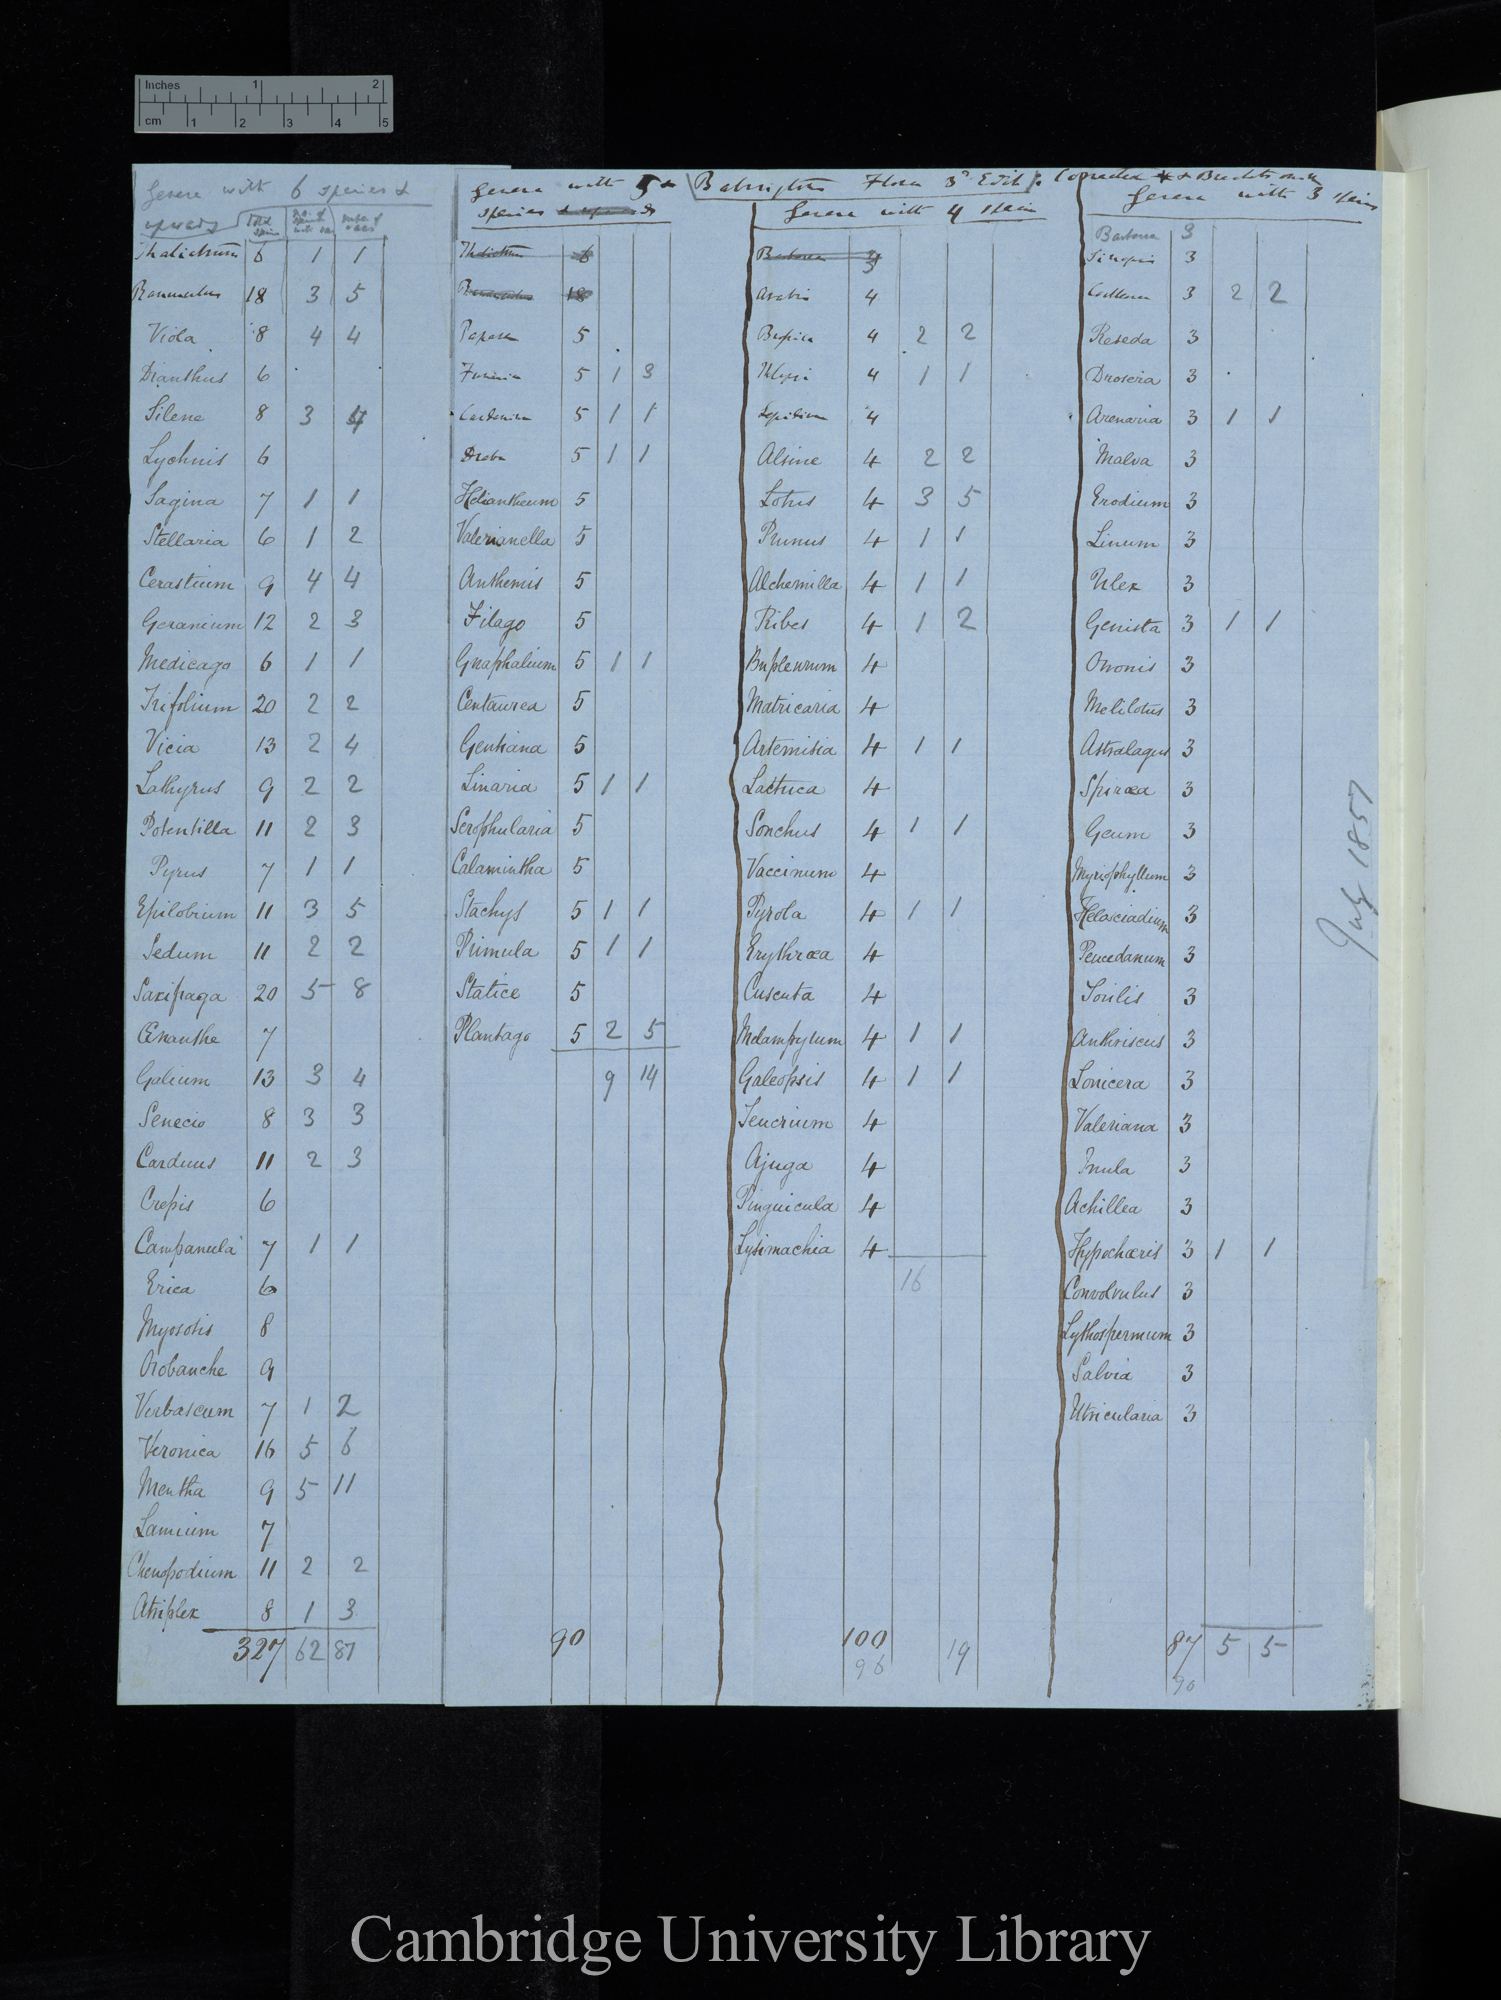 Inches 1 2
cm 1 2 3 4 5
Genera with 6 species &
upwards
Total species
no. of species with var
number of vars
Thalictrum 6 1 1
Ranunculus 18 3 5
Viola 8 4 4
Dianthus 6
Silene 8 3 4
Lychnis 6
Sagina 7 1 1
Stellaria 6 1 2
Cerastium 9 4 4
Geranium 12 2 3
Medicago 6 1 1
Trifolium 20 2 2
Vicia 13 2 4
Lathyrus 9 2 2
Potentilla 11 2 3
Pyrus 7 1 1
Epilobium 11 3 5
Sedum 11 2 2
Saxifraga 20 5 8
Œnanthe 7
Galium 13 3 4
Senecio 8 3 3
Carduus 11 2 3
Crepis 6
Campanula 7 1 1
Erica 6
Myosotis 8
Orobanche 9
Verbascum 7 1 2
Veronica 16 5 6
Mentha 9 5 11
Lamium 7
Chenopodium 11 2 2
Atriplex 8 1 3
327 62 87
Babington Flora 3d Edit.
Genera with 5
species
Thalictrum 6
Ranunculus 18
Papaver 5
Fumaria 5 1 3
Cardamine 5 1 1
Draba 5 1 1
Helianthemum 5
Valerianella 5
Anthemis 5
Filago 5
Gnaphalium 5 1 1
Centaurea 5
Gentiana 5
Linaria 5 1 1
Scrophularia 5
Calamintha 5
Stachys 5 1 1
Primula 5 1 1
Statice 5
Plantago 5 2 5
9 14
90
Genera with 4 species
Barbarea
Arabis 4
Brassica 4 2 2
Thlaspi 4 1 1
Lepidium 4
Alsine 4 2 2
Lotus 4 3 5
Prunus 4 1 1
Alchemilla 4 1 1
Ribes 4 1 2
Bupleurum 4
Matricaria 4
Artemisia 4 1 1
Lactuca 4
Sonchus 4 1 1
Vaccinum 4
Pyrola 4 1 1
Erythræa 4
Cuscuta 4
Melampyrum 4 1 1
Galeopsis 4 1 1
Teucrium 4
Ajuga 4
Pinguicula 4
Lysimachia 4
16
100 19
96
Genera with 3 species
Barbarea 3
Sinapis 3
Cochlearia 3 2 2
Reseda 3
Drosera 3
Arenaria 3 1 1
Malva 3
Erodium 3
Linum 3
Ulex 3
Genista 3 1 1
Ononis 3
Melilotus 3
Astralagus 3
Spiræa 3
Geum 3
Myriophyllum 3
Helosciadium 3
Peucedanum 3
Torilis 3
Anthriscus 3
Lonicera 3
Valeriana 3
Inula 3
Achillea 3
Hypochœris 3 1 1
Convolvulus 3
Lythospermum 3
Salvia 3
Utricularia 3
87 5 5
90
July 1857
Cambridge University Library